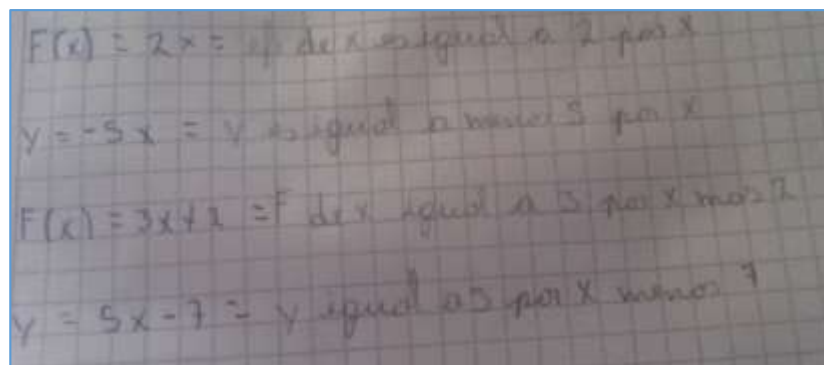 F(x) = 2x = f de x es igual a 2 por x
y = -5x = y es igual a menos 5 por x
F(x) = 3x+2 = F de x igual a 3 por x mas 2
y = 5x-7 = y igual a 5 por x menos 7